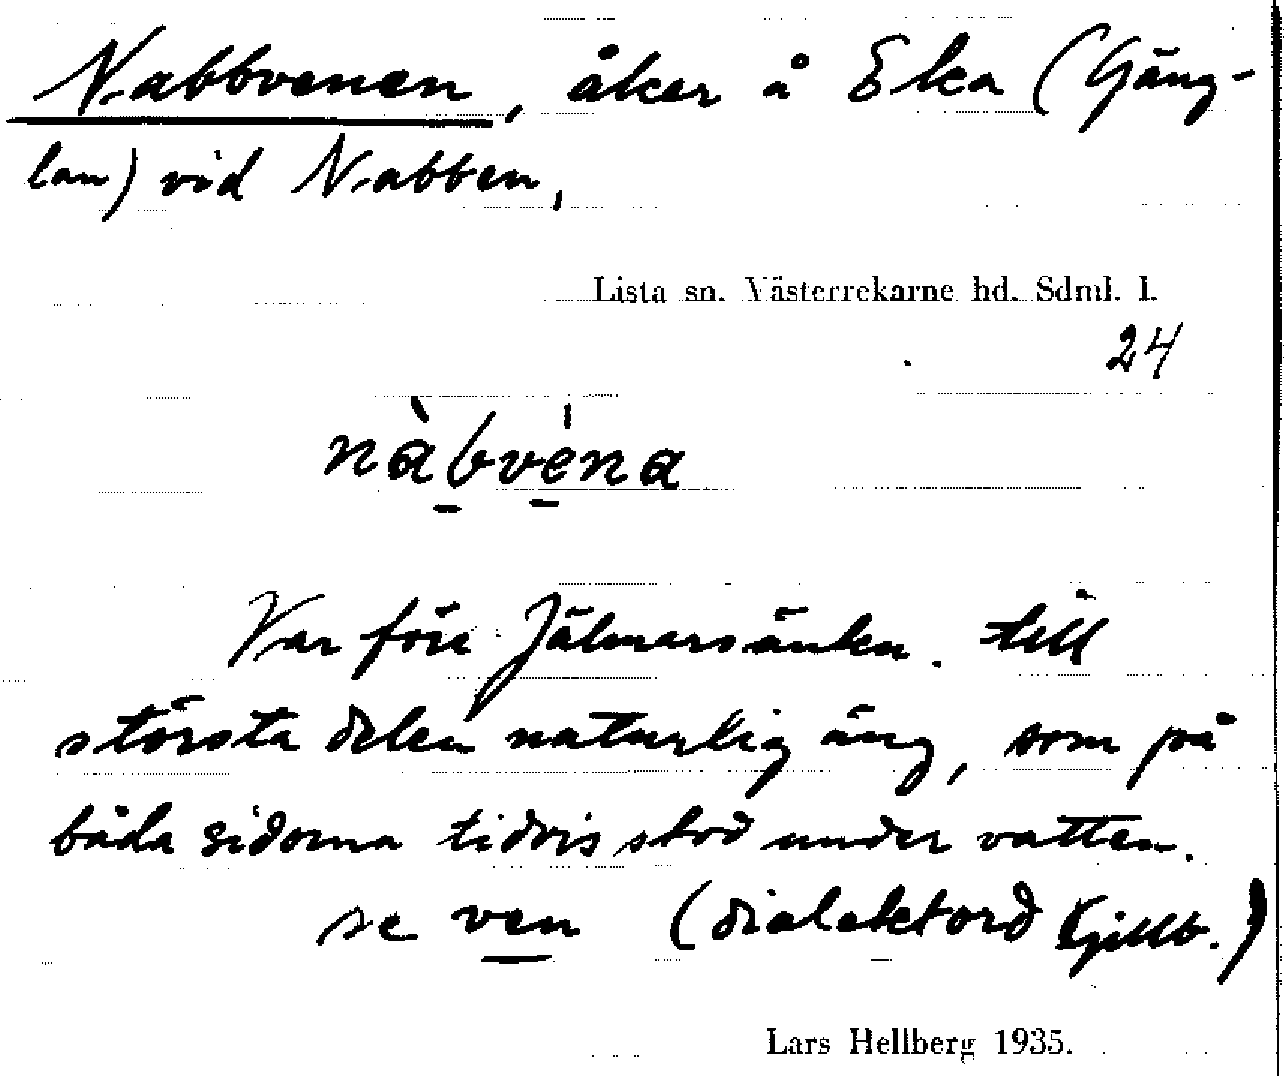 Nabbvenen, åker å Eka (Gäng-
lan) vid Nabben,
Lista sn. Västerrekarne hd. Sdml. l.
24
nàbvéna
Var före Jälmarsänkn. till
största delen naturlig äng, som på
båda sidorna tidvis stod under vatten.
se ven (dialektord Gillb.)
Lars Hellberg 1935.